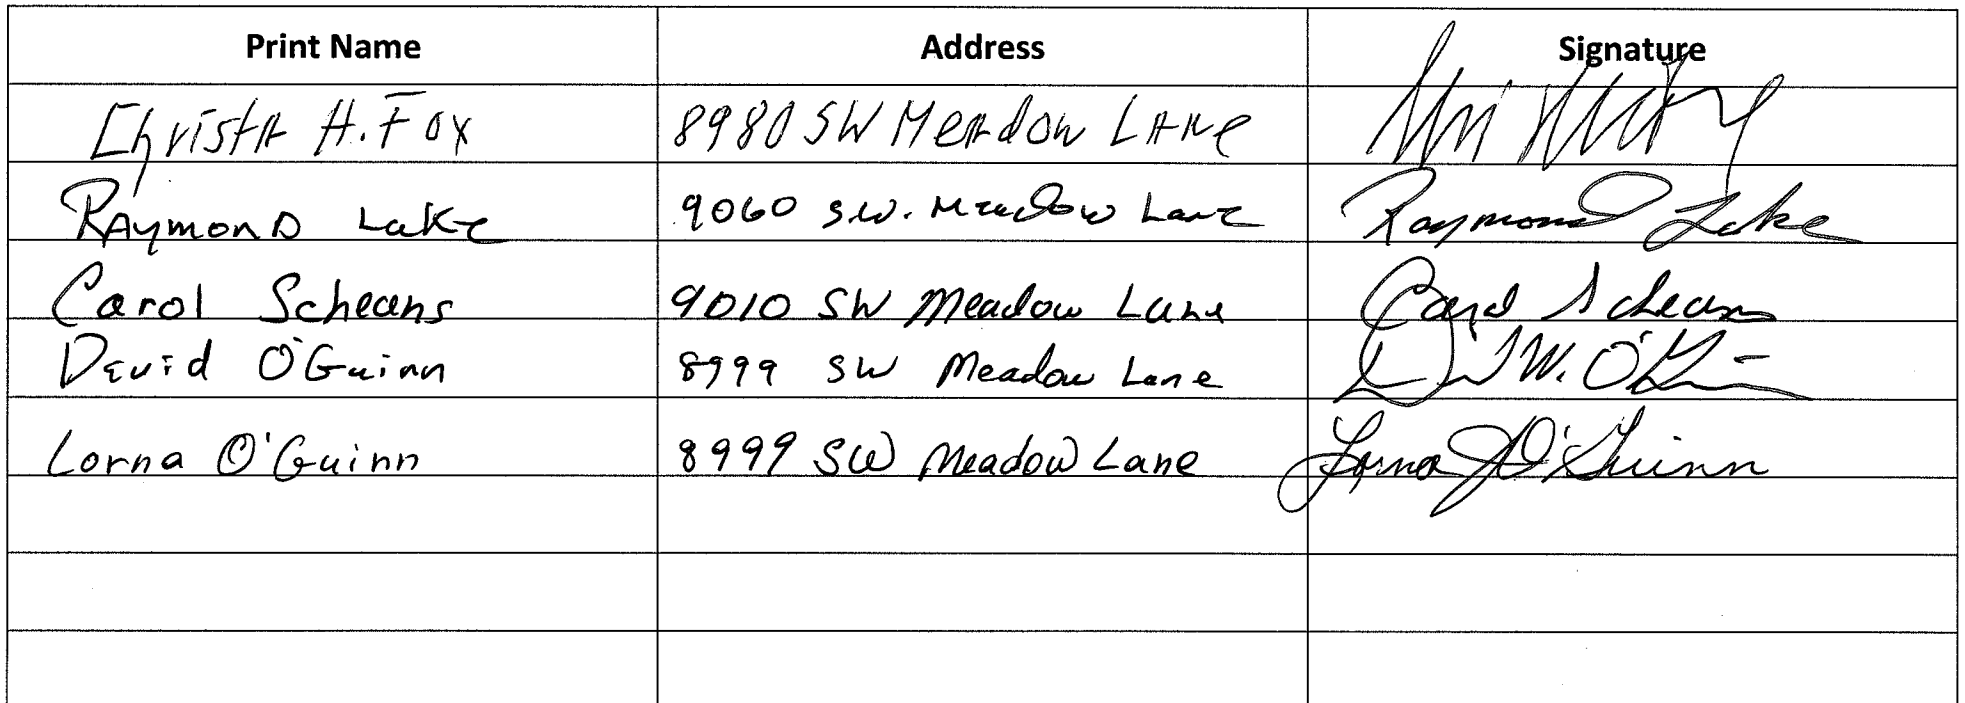 Print Name Address Signature
Christa H. Fox 8980 SW Meadow Lane
Raymond Lake 9060 S.W. Meadow Lane Raymond Lake
Carol Scheans 9010 SW Meadow Lane Carol Scheans
David O'Guinn 8999 SW Meadow Lane David W. O'Guinn
Lorna O'Guinn 8999 SW Meadow Lane Lorna J O'Guinn